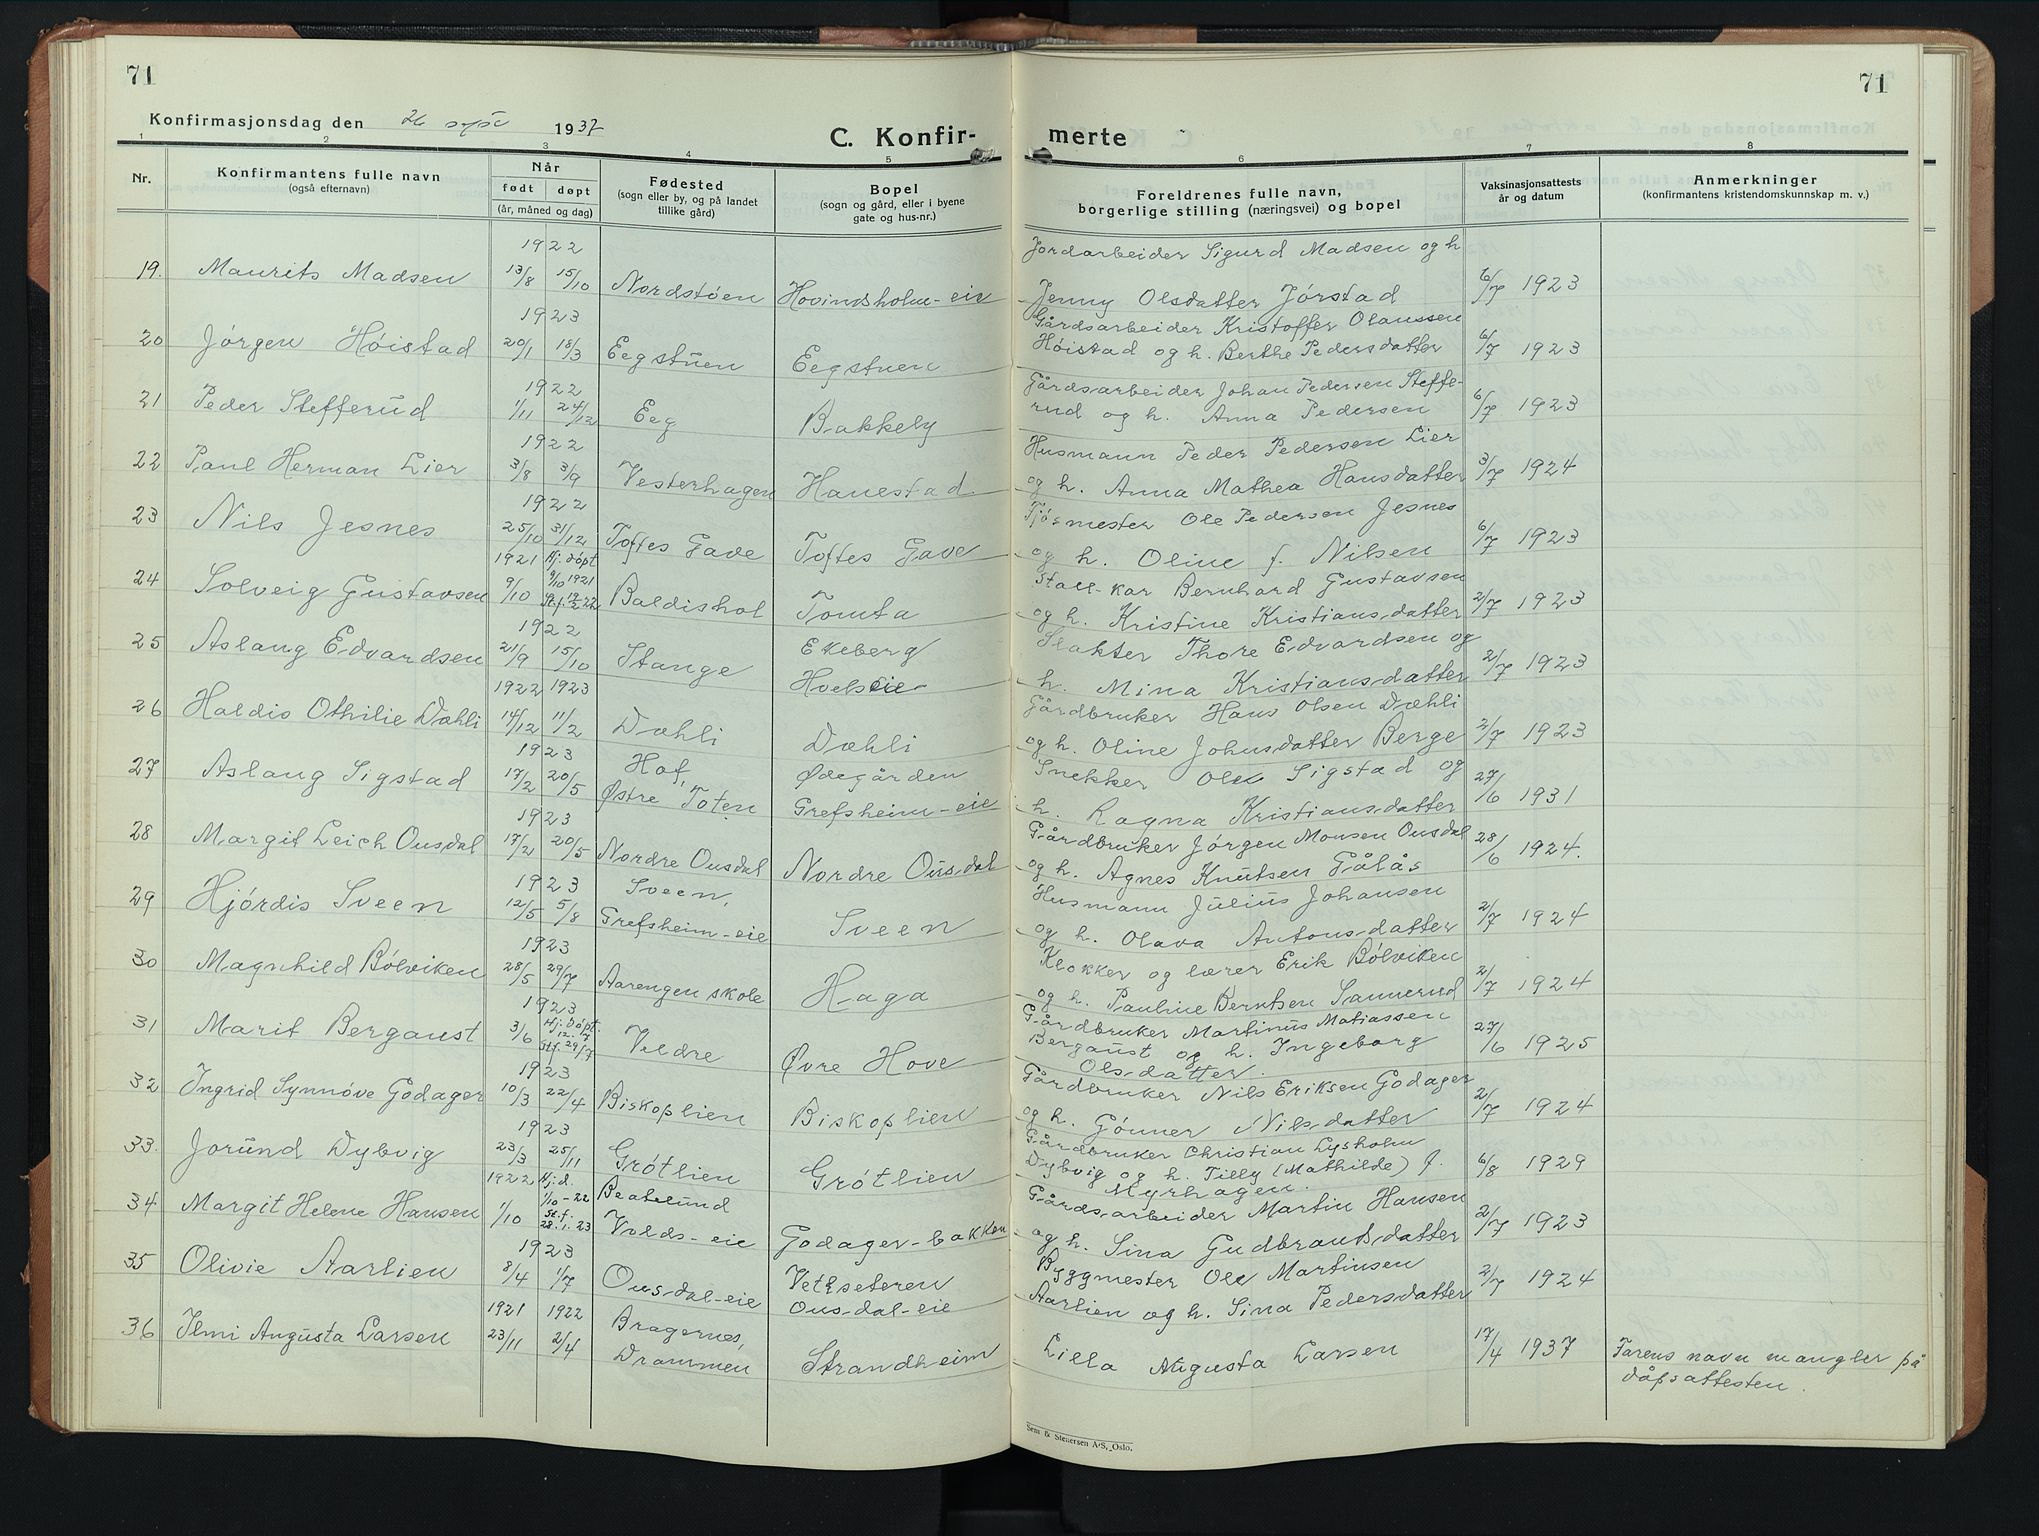 71
71
Konfirmasjonsdag den 26 sept 1937
C. Konfir- merte
1 2 3 4 5 6 7 8
Nr.
Konfirmantens fulle navn
(også efternavn)
Når
født døpt
(år, måned og dag)
Fødested
(sogn eller by, og på landet
tillike gård)
Bopel
(sogn og gård, eller i byene
gate og hus-nr.)
Foreldrenes fulle navn,
borgerlige stilling (næringsvei) og bopel
Vaksinasjonsattests
år og datum
Anmerkninger
(konfirmantens kristendomskunnskap m. v.)
1922 Jordarbeider Sigurd Madsen og h
19. Maurits Madsen 13/8 15/10 Nordstøen Hovindsholm-eie Jenny Olsdatter Jørstad 6/7 1923
1923 Gårdsarbeider Kristoffer Olaussen
20 Jørgen Høistad 20/1 18/3 Eegstuen Eegstuen Høistad og h. Berthe Pedersdatter 6/7 1923
1922 Gårdsarbeider Johan Pedersen Steffe-
21 Peder Stefferud 1/11 24/12 Eeg Bakkely rud og h. Anna Pedersen 6/7 1923
1922 Husmann Peder Pedersen Lier
22 Paul Herman Lier 3/8 3/9 Vesterhagen Hanestad og h. Anna Mathea Hansdatter 3/7 1924
1922 Fjøsmester Ole Pedersen Jesnes
23 Nils Jesnes 25/10 31/12 Toftes Gave Toftes Gave og h. Oline f. Nilsen 6/7 1923
1921 Hj. døpt 9/10 1921 Stall-kar Bernhard Gustavsen
24 Solveig Gustavsen 9/10 St.f. 19/2 22 Baldishol Tomta og h. Kristine Kristiansdatter 2/7 1923
1922 Ekeberg Slakter Thore Edvardsen og
25 Aslaug Edvardsen 21/9 15/10 Stange Hvelseie h. Mina Kristiansdatter 2/7 1923
1922 1923 Gårdbruker Hans Olsen Dæhli
26 Haldis Othilie Dæhli 14/12 11/2 Dæhli Dæhli og h. Oline Johnsdatter Berge 2/7 1923
1923 Hof, Ødegården Snekker Ole Sigstad og
27 Aslaug Sigstad 17/2 20/5 Østre Toten Grefsheim-eie h. Ragna Kristiansdatter 27/6 1931
1923 Gårdbruker Jørgen Monsen Ousdal
28 Margit Leich Ousdal 17/2 20/5 Nordre Ousdal Nordre Ousdal og h. Agnes Knutsen Gålås 28/6 1924.
1923 Sveen, Husmann Julius Johansen
29 Hjørdis Sveen 12/5 5/8 Grefsheim-eie Sveen og h. Olava Antonsdatter 2/7 1924
1923 Klokker og lærer Erik Bølviken
30 Magnhild Bølviken 28/5 29/7 Aarengen skole Haga og h. Pauline Berntsen Sannerud 2/7 1924
1923 Hj. døpt. 12. 7 Gårdbruker Martinus Matiassen
31 Marit Bergaust 3/6 St.f. 29/7 Veldre Øvre Hove Bergaust og h. Ingeborg 27/6 1925
Olsdatter.
1923 Gårdbruker Nils Eriksen Godager
32 Ingrid Synnøve Godager 10/3 22/4 Biskoplien Biskoplien og h. Gønner Nilsdatter 2/7 1924
1923 Gårdbruker Christian Lysholm
33. Jorund Dybvig 23/3 25/11 Grøtlien Grøtlien Dybvig og h. Tilly (Mathilde) f. 6/8 1929
Myrhagen.
1922 Hj.d. 1/10-22 Beatelund Gårdsarbeider Martin Hansen
34 Margit Helene Hansen 1/10 St.f. 28.1.23 Volds-eie Godager-bakken og h. Sina Gudbrandsdatter 2/7 1923
1923 Vetlseteren Byggmester Ole Martinsen
35 Olivie Aarlien 8/4 1/7 Ousdal-eie Ousdal-eie Aarlien og h. Sina Pedersdatter 2/7 1924
1921 1922 Bragernes,
36 Ilmi Augusta Larsen 23/11 2/4 Drammen Strandheim Lilla Augusta Larsen 17/4 1937 Farens navn mangler på
dåpsattesten.
Sem & Stenersen A/S, Oslo.